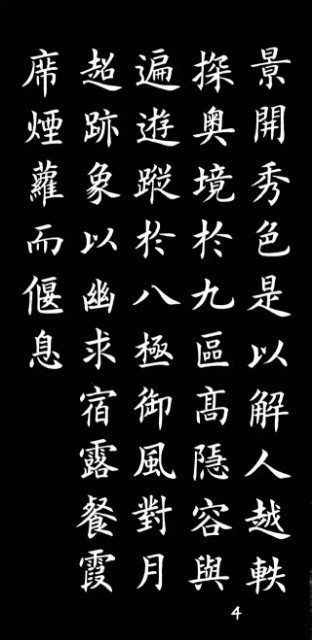 景開秀色是以解人越軼
探奧境於九區高隱容與
遍遊蹤於八極御風對月
超跡象以幽求宿露餐霞
席煙蘿而偃息
4